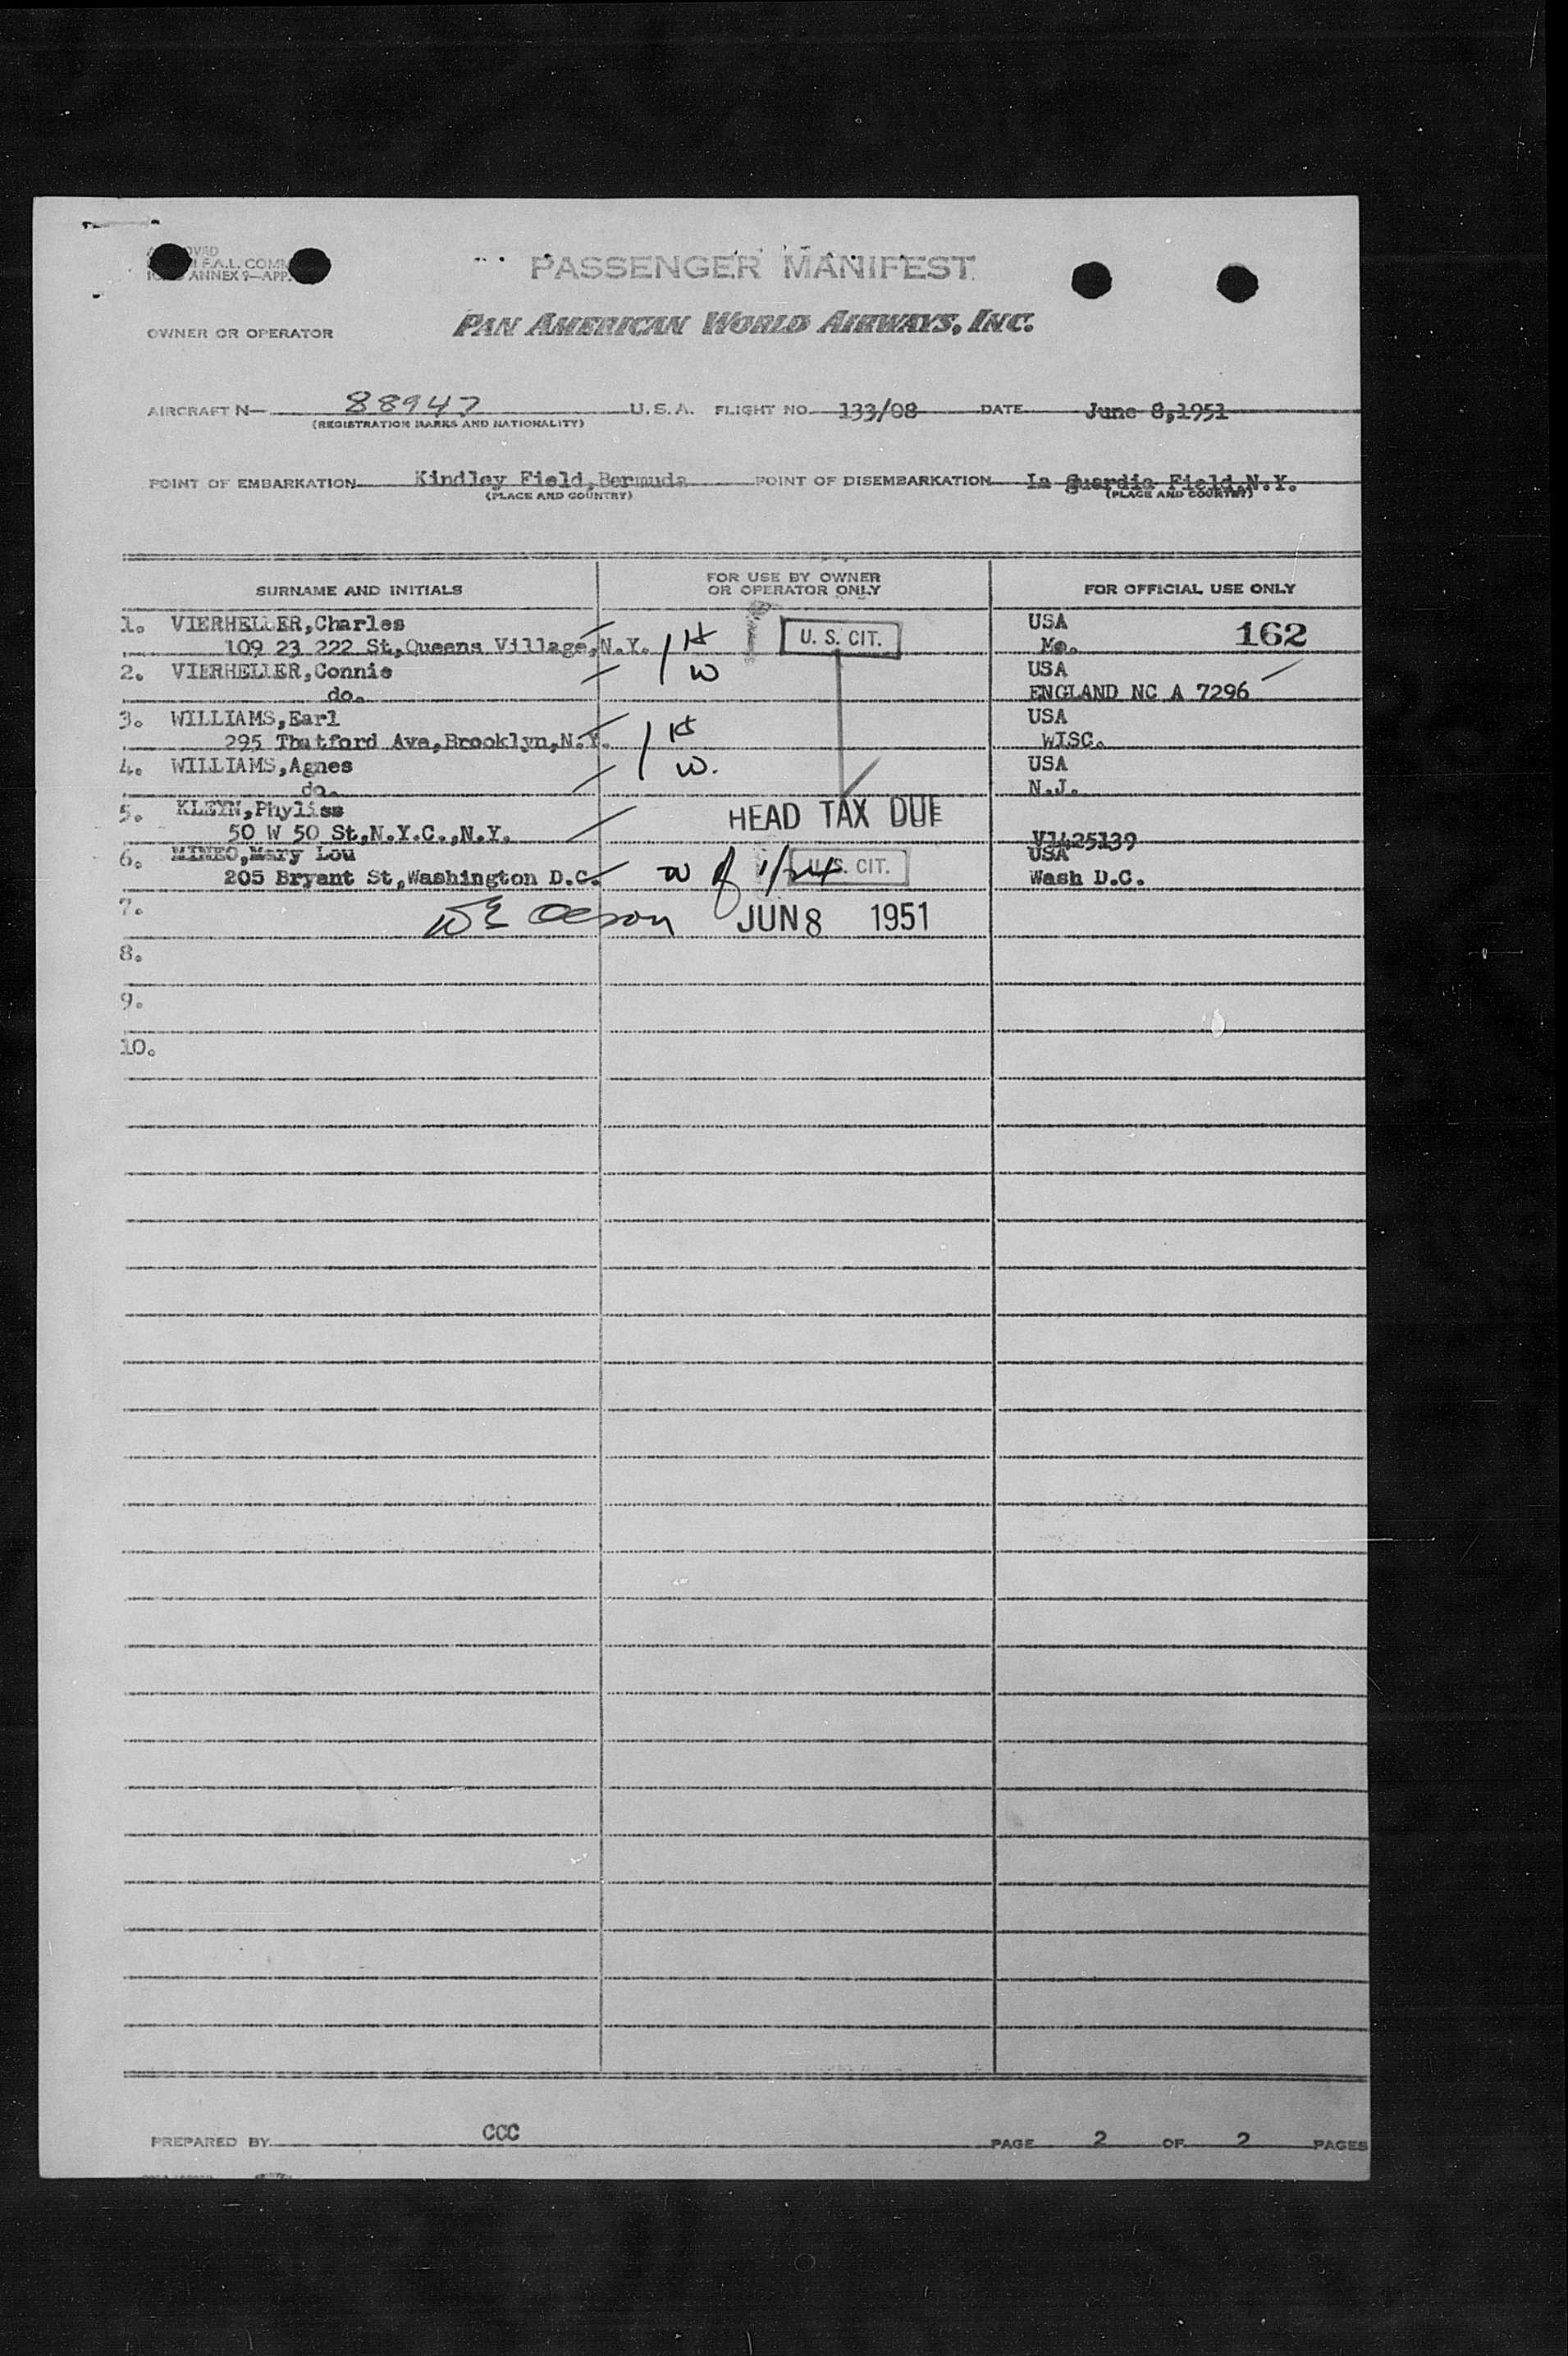 PASSENGER MANIFEST
ANNEX 9—APP.
OWNER OR OPERATOR
PAN AMERICAN WORLD AIRWAYS, INC.
AIRCRAFT N— 88947 U.S.A. FLIGHT NO. 133/08 DATE June 8,1951
(REGISTRATION MARKS AND NATIONALITY)
POINT OF EMBARKATION Kindley Field,Bermuda POINT OF DISEMBARKATION La guardia Field,N.Y.
(PLACE AND COUNTRY) (PLACE AND COUNTRY)
SURNAME AND INITIALS FOR USE BY OWNER OR OPERATOR ONLY FOR OFFICIAL USE ONLY
1. VIERHELLER,Charles USA 162
109 23 222 St,Queens Village,N.Y. U. S. CIT. Mo.
2. VIERHELLER,Connie W USA
do. ENGLAND NC A 7296
3. WILLIAMS,Earl USA
295 Thatford Ave,Brooklyn,N.Y. WISC.
4. WILLIAMS,Agnes W. USA
do. N.J.
5. KLEYN,Phyliss HEAD TAX DUE
50 W 50 St,N.Y.C.,N.Y. V1425139
6. MINEO,Mary Lou USA
205 Bryant St,Washington D.C. U.S. CIT. Wash D.C.
7. JUN 8 1951
8.
9.
10.
PREPARED BY CCC PAGE 2 OF 2 PAGES